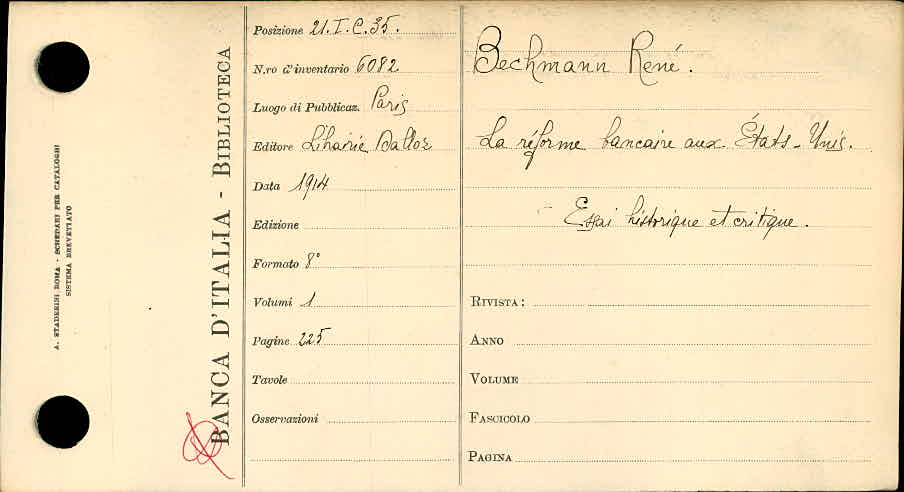 A. STADERINI ROMA - SCHEDARI PER CATALOGHI
SISTEMA BREVETTATO
BANCA D'ITALIA - BIBLIOTECA
Posizione 21.I.C.35.
N.ro d'inventario 6082
Luogo di Pubblicaz. Paris
Editore Librairie Dalloz
Data 1914
Edizione
Formato 8°
Volumi 1
Pagine 225
Tavole
Osservazioni
Bechmann René.
La réforme bancaire aux États-Unis.
- Essai historique et critique.
RIVISTA:
ANNO
VOLUME
FASCICOLO
PAGINA